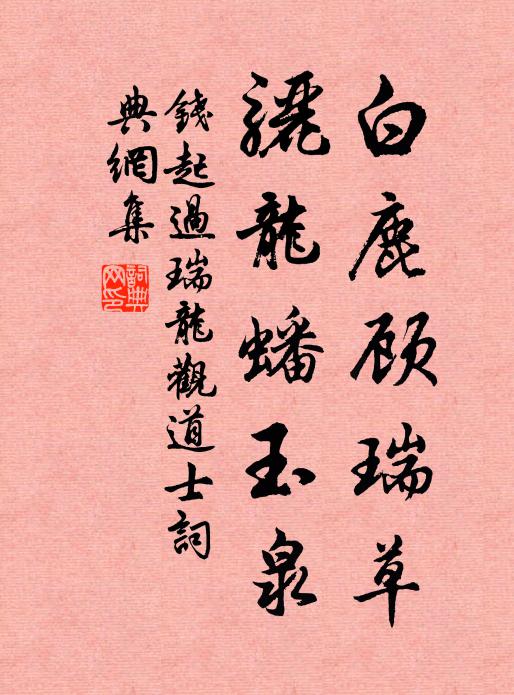 白鹿顾瑞草
驪龍蟠玉泉
錢起過瑞龍觀道士詞
典網集
詞典網印